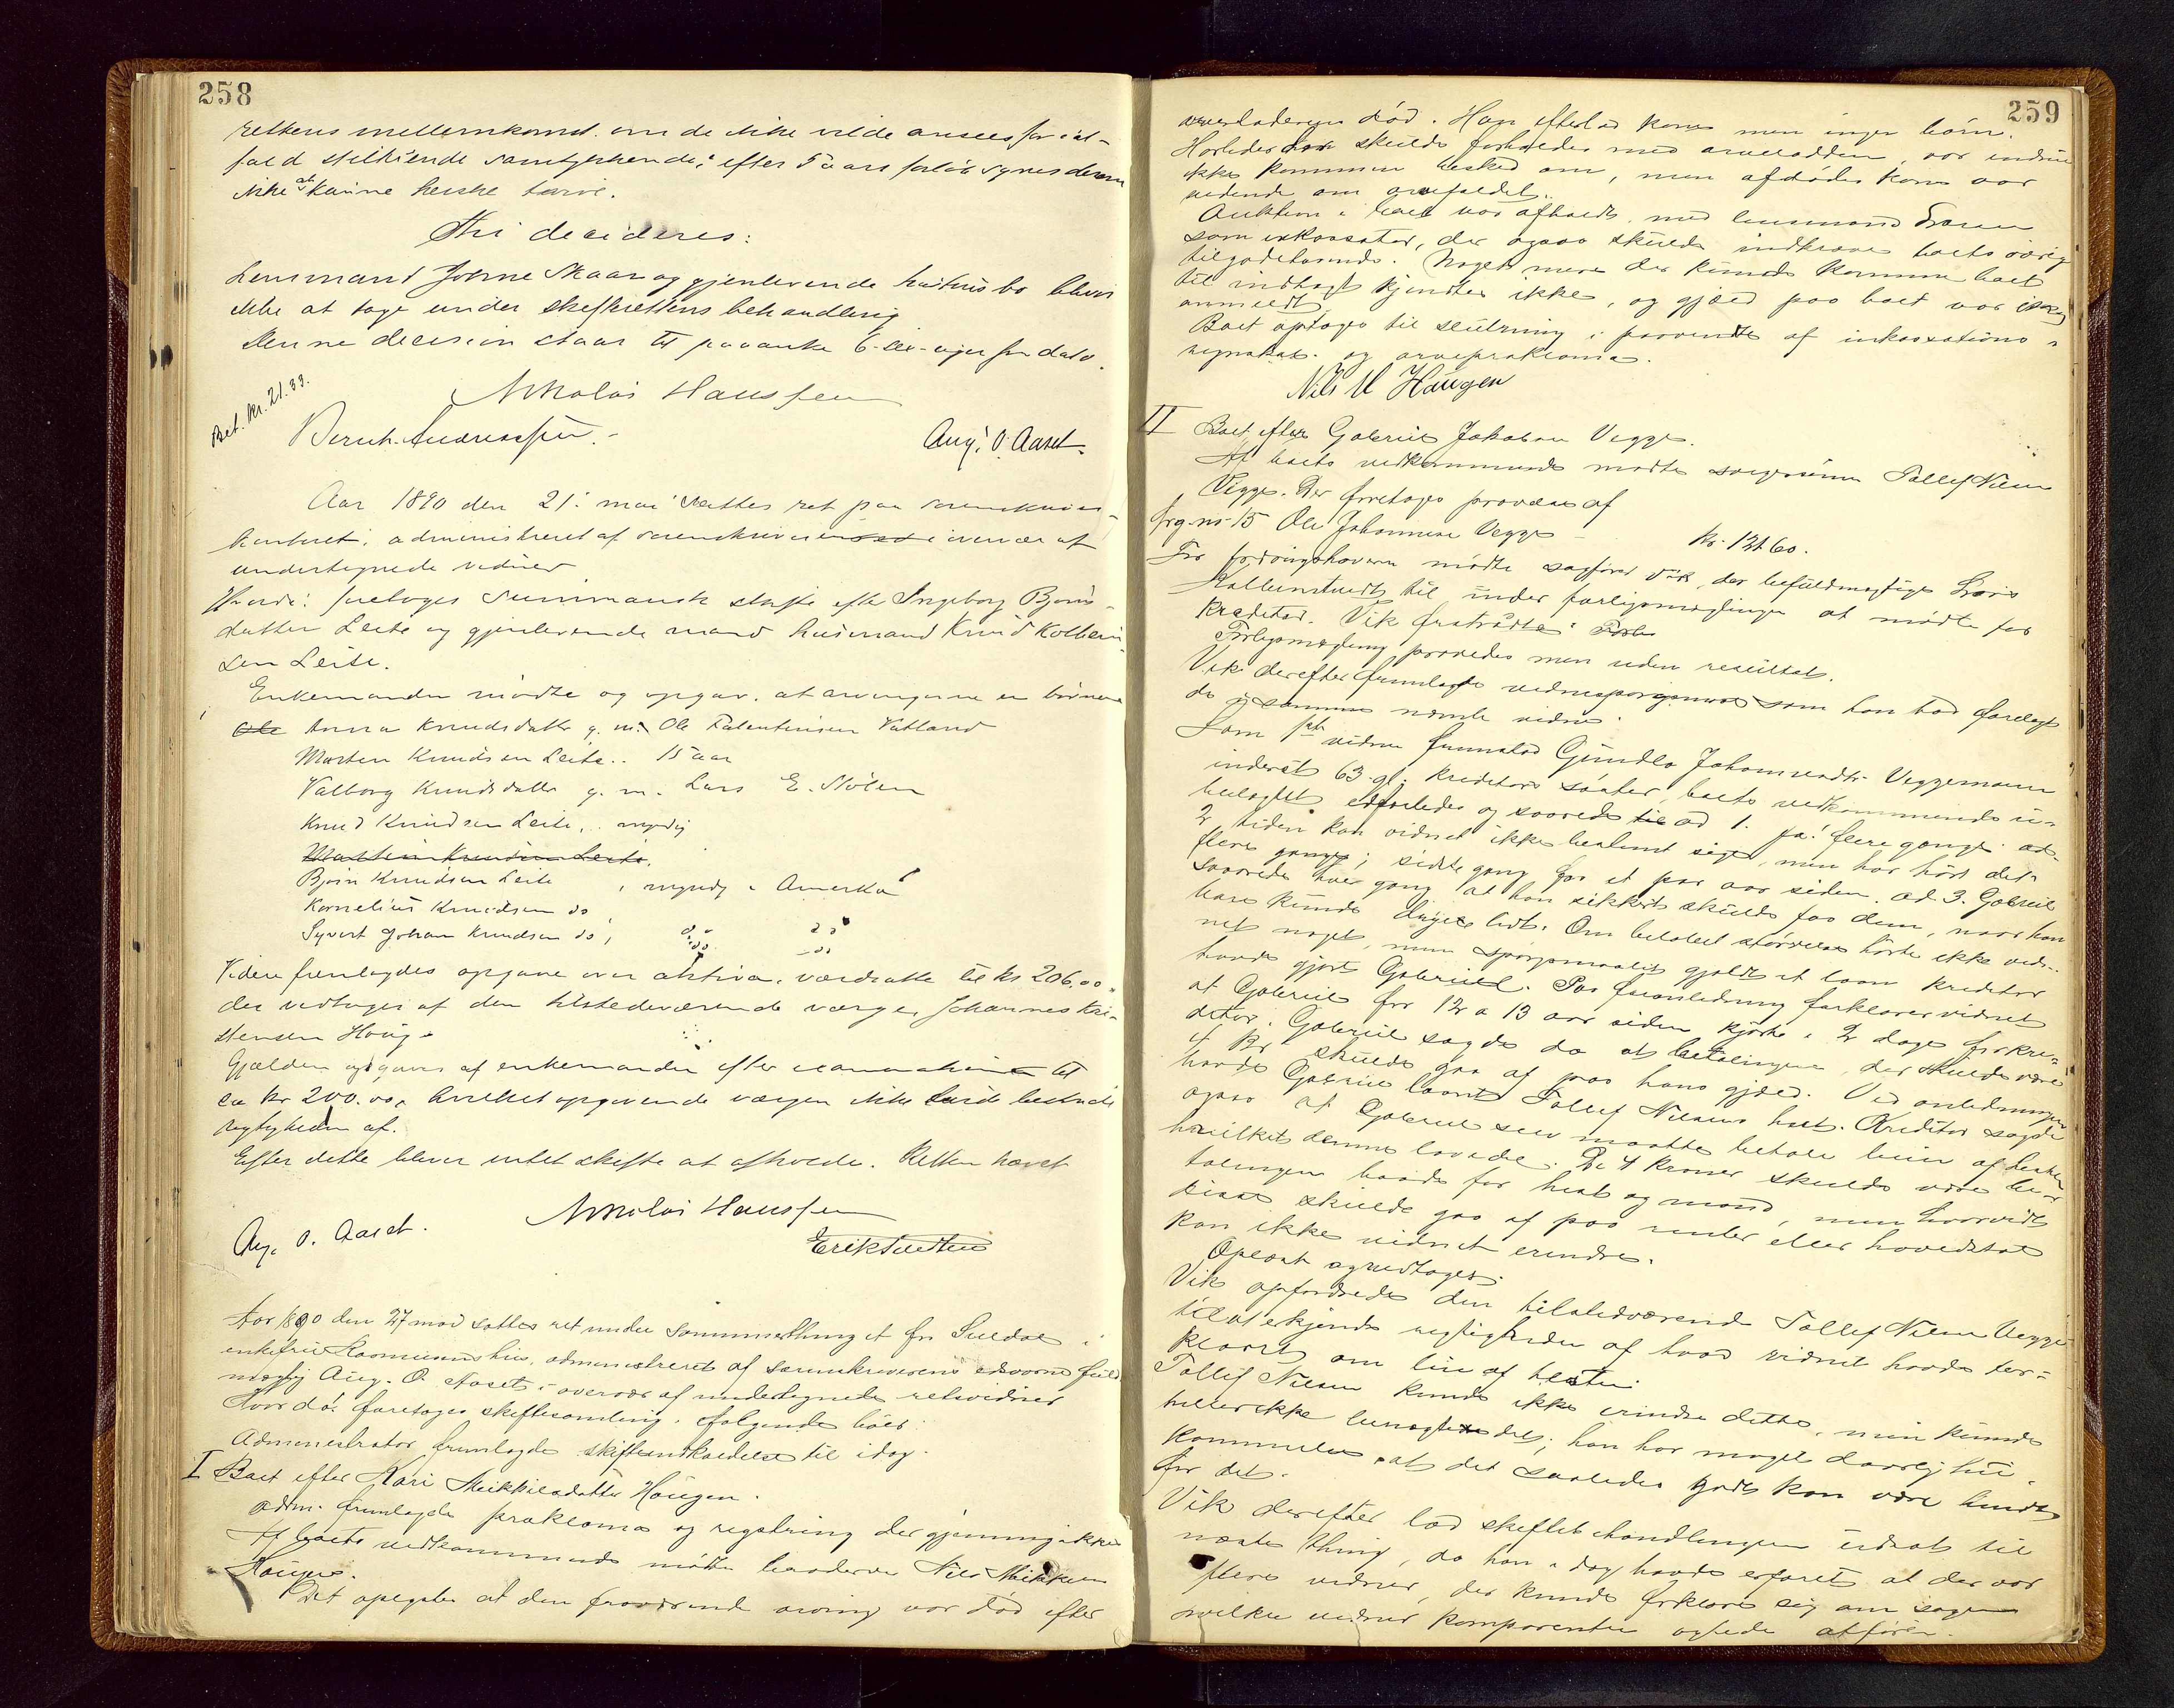 258
rettens mellemkomst. om de ikke vilde ansees for i al-
fald stiltiende samtykkende; efter 5 aars forløb synes denne
ikke at kunne heiske tarve.
Thi decideres:
Lensmand Johne Skaar og gjenlevende hustrus bo bliver
ikke at tage under skifterettens behandling
Denne decision staar til paaanke 6-sex-uger fra dato.
Bet. Kr. 21.33.
Nikolai Hanssen
Bernh. Andreassen.
Aug. O. Aaset.
Aar 1890 den 21. mai sattes ret paa sorenskriver-
kontoret, administreret af sorenskriveren i overvær af
undertegnede vidner
Hvorda: foretoges summarisk skifte efter Ingeborg Bjøns-
datter Leite og gjenlevende mand husmand Knud Kolbein-
sen Leite.
Enkemanden mødte og opgav, at arvingerne er børnene
Ole Anna Knudsdatter g. m. Ole Valentinsen Vatland
Morten Knudsen Leite.. 15 aar
Valborg Knudsdatter g. m. Lars E. Stølen
Knud Knudsen Leite, .. myndig
Bjøn Knudsen Leite , myndig i Amerika
Kornelius Knudsen do
Syvert Johan Knudsen do,
Videre fremlagdes opgave over aktiva, værdsatte til kr 206.00.
der vedtoges af den tilstedeværende værge, Johannes Kri-
stensen Houg.
Gjælden opgaves af enkemanden efter examination til
ca kr 200.00, hvilket opgivende værgen ikke turde bestride
rigtigheden af.
Efter dette bliver intet skifte at afholde. Retten hævet
Nikolai Hanssen
Aug. O. Aaset.
Erik
Aar 1890 den 27 mai sattes ret under sommerthinget for Suldal i
enkefru Rasmussens hus, administreret af sorenskriverens edsvorne fuld-
mægtig Aug. O. Aaset i overvær af undertegnede retsvidner
Hvorda: foretoges skiftesamling i følgende boer:
Administrator fremlagde skifteindkaldelse til idag.
I Boet efter Kari Mikkelsdatter Haugen.
Adm. fremlagde proklama og registrering der gjennemgikkes
Af boets vedkommende mødte broderen Nils Mikkelsen
Haugen.
Det opgaves at den fraværende arving var død efter
259
arveladerens død. Han efterlod kone men ingen børn.
Hvorledes der skulde forholdes med arvelodden, var endnu
ikke kommen besked om, men afdødes kone var
vidende om arvefaldet.
Auktion i boet var afholdt, med lensmand
som inkassator, der ogsaa skulde indkræve boets øvrige
tilgodehavende. Noget mere der kunde komme boet
til indtægt kjendtes ikke, og gjæld paa boet var
anmeldt.
Boet optoges til slutning i paavente af inkassations-
regnskab og arveproklama.
Nils M Haugen
II Boet efter Gabriel Jakobsen Vegge.
Af boets vedkommende mødte svigersønnen Tollef Nilsen
Vegge. Der foretoges prøvelse af
frg. nr. 15 Ole Johannesen Vegge kr. 121.60.
For fordringshaveren mødte sagfører Vik, der befuldmægtigede Lars
Kolbenstvedt til under forligsmæglingen at møde for
kreditor. Vik fratraadte.
Forligsmægling prøvedes men uden resultat.
Vik derefter fremlagde vidnespørgsmaal som han bad forelagt
de nævnte vidner.
Som 1ste vidne fremstod Gundla Johannesdtr. Veggemoen
inderst 63 gl. kreditors søster, boets vedkommende u-
beslægtet edfæstedes og svarede ad 1. ja! flere gange. ad
2 tiden kan vidnet ikke bestemt sige, men har hørt det
flere gange; sidste gang for et par aar siden. ad. 3. Gabriel
svarede hver gang at han sikkert skulde faa dem, naar han
bare kunde lidt. Om beløbets størrelse hørte ikke vid-
net noget, men spørgsmaalet gjaldt et laan kreditor
havde gjort Gabriel. Paa foranledning forklarer vidnet
at Gabriel for 12 a 13 aar siden kjørte i 2 dage for kre-
ditor. Gabriel sagde da at betalingen, der skulde være
4 Kr skulde gaa af paa hans gjæld. Ved anledningen
havde Gabriel laant Tollef Nilsens hest. Kreditor sagde
ogsaa at Gabriel selv maatte betale leien af hesten
hvilket denne lovede. De 4 kroner skulde være be-
talingen baade for hest og mand, men hvorvidt
disse skulde gaa af paa renter eller hovedstol
kan ikke vidnet erindre.
Oplæst og vedtaget.
Vik opfordrede den tilstedeværende Tollef Nilsen Vegge
til at erkjende rigtigheden af hvad vidnet havde for-
klaret om leie af hesten.
Tollef Nilsen kunde ikke erindre dette, men kunde
hellerikke benegte det; han har meget daarlig hu-
kommelse, at det saaledes godt kan være hændt
for det.
Vik derefter lod skiftebehandlingen udsat til
næste thing, da han i dag havde erfaret at der var
flere vidner, der kunde forklare sig om sagen
hvilke vidner komparenten agtede atføre.